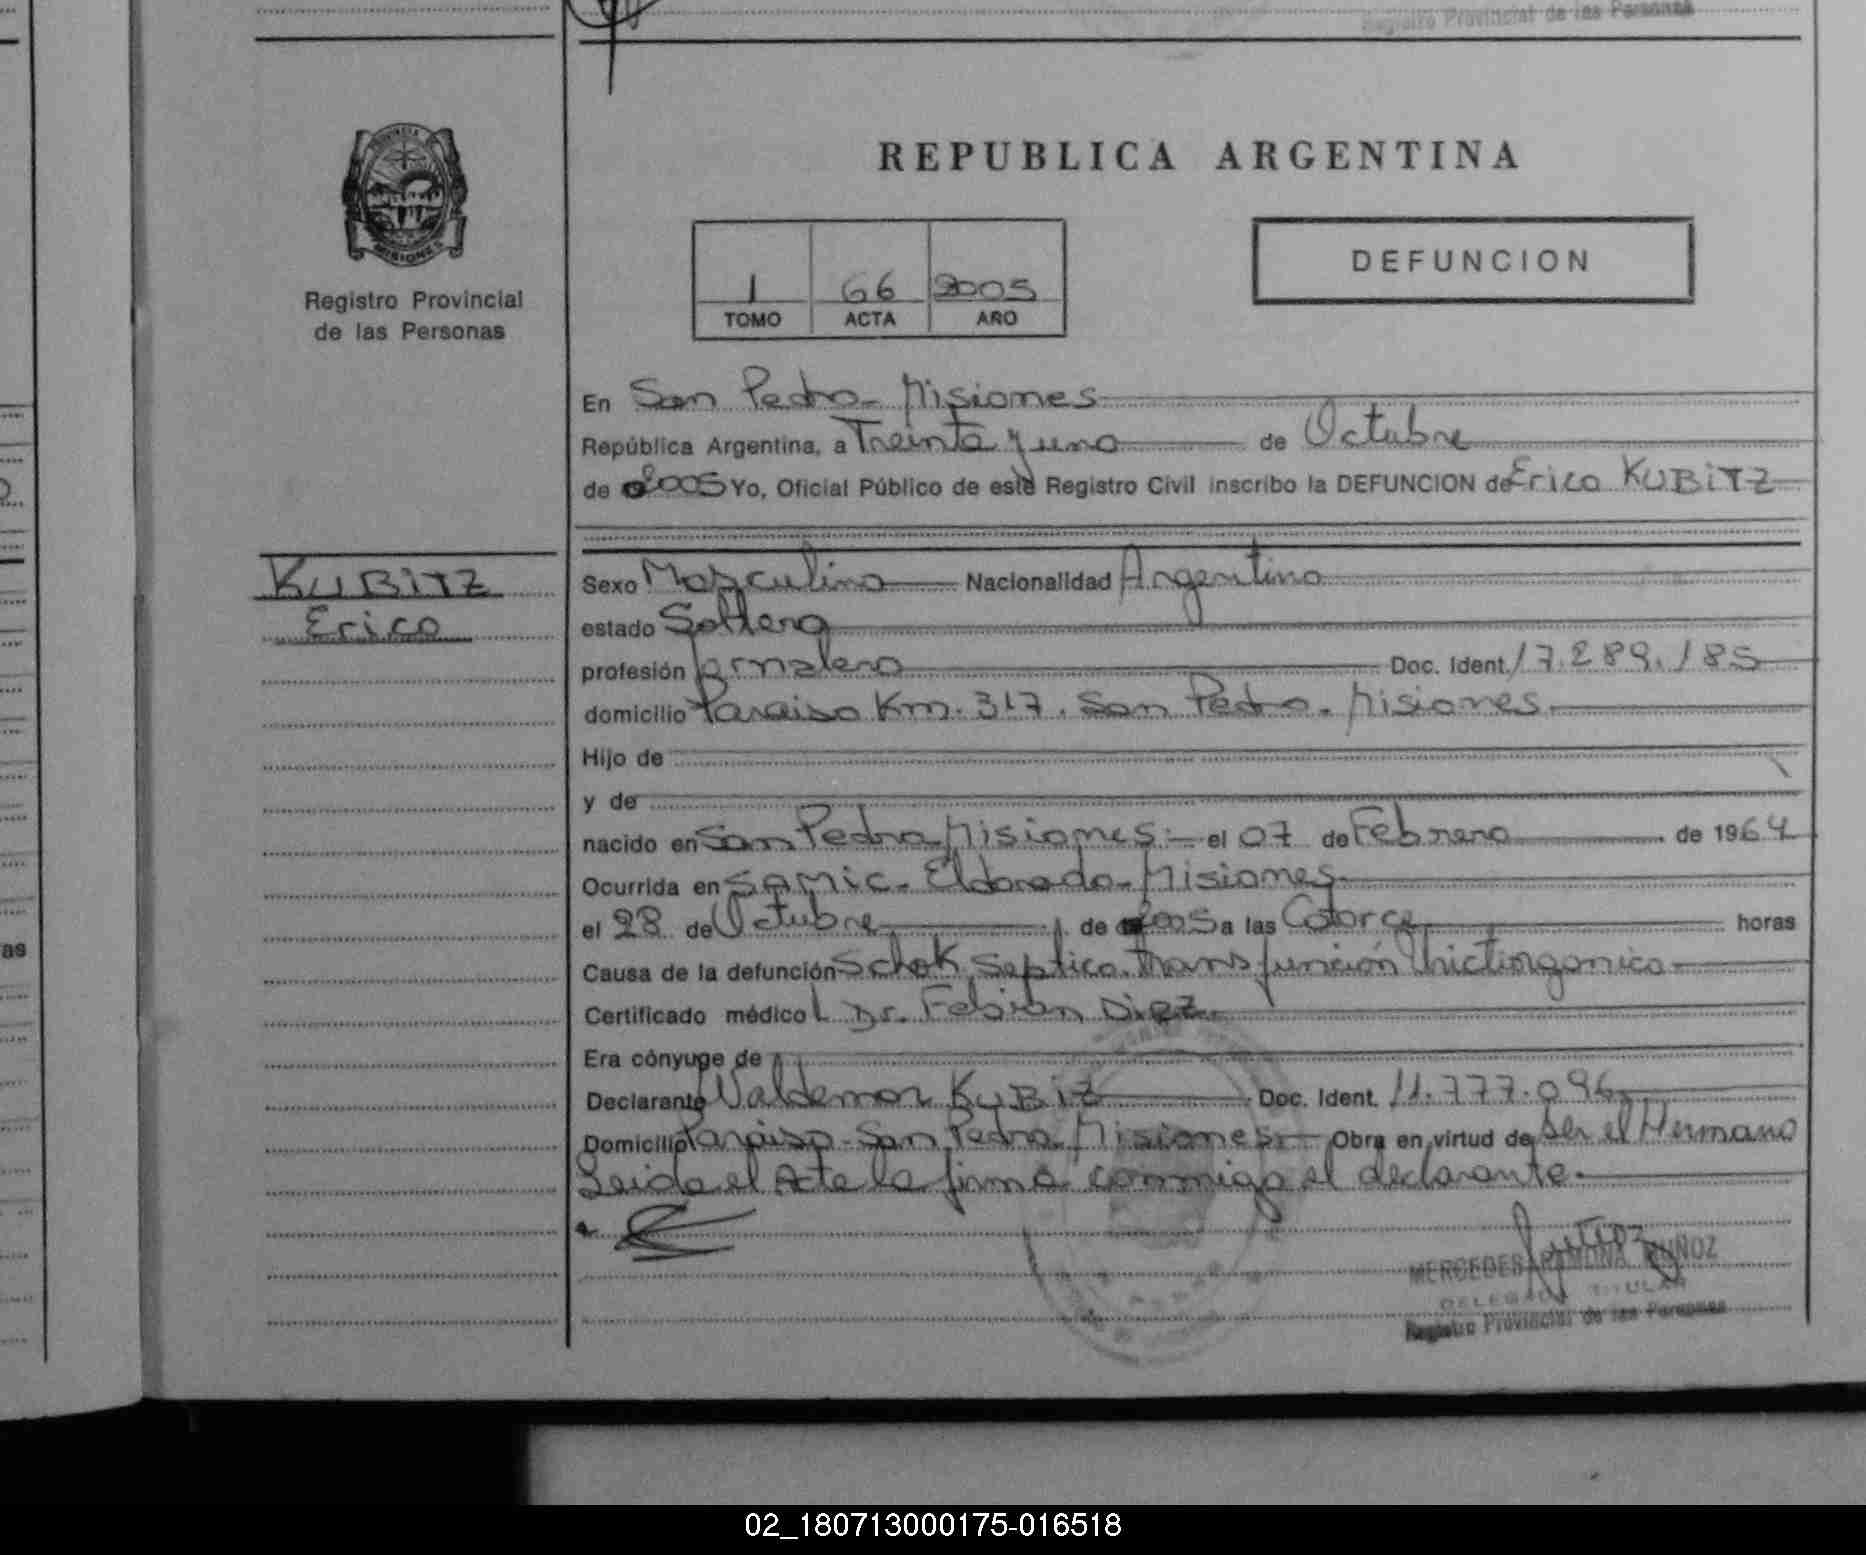 Registro Provincial de las Personas
PROVINCIA
MISIONES
Registro Provincial
de las Personas
REPUBLICA ARGENTINA
1 66 2005
TOMO ACTA AÑO
DEFUNCION
En San Pedro - Misiones
República Argentina, a Treinta y uno de Octubre
de 2005 Yo, Oficial Público de este Registro Civil inscribo la DEFUNCION de Erico KUBITZ
KUBITZ
Erico
Sexo Masculino Nacionalidad Argentino
estado Soltero
profesión Jornalero Doc. Ident. 17.289.185
domicilio Paraiso Km. 317. San Pedro - Misiones
Hijo de
y de
nacido en San Pedro - Misiones - el 07 de Febrero de 1964
Ocurrida en SAMIC - Eldorado - Misiones
el 28 de Octubre de 2005 a las Catorce horas
Causa de la defunción Schok Septico
Certificado médico Dr. Fabian Diez
Era cónyuge de
Declarante Waldemar KUBIZ Doc. Ident. 11.777.096
Domicilio Paraiso - San Pedro - Misiones - Obra en virtud de ser el Hermano
Leida el Acta la firma conmigo el declarante.
MERCEDES RAMONA MUÑOZ
DELEGADA TITULAR
Registro Provincial de las Personas
as
02_180713000175-016518